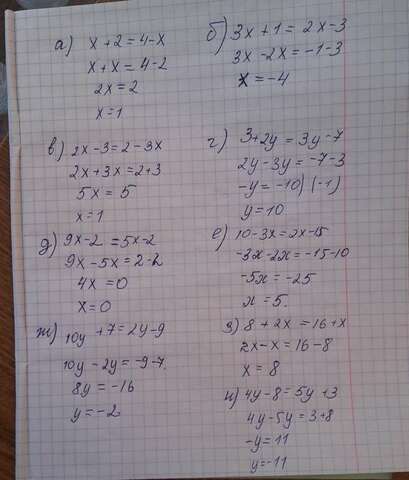 а) x + 2 = 4 - x
x + x = 4 - 2
2x = 2
x = 1
б) 3x + 1 = 2x - 3
3x - 2x = -1 - 3
x = -4
в) 2x - 3 = 2 - 3x
2x + 3x = 2 + 3
5x = 5
x = 1
г) 3 + 2y = 3y - 7
2y - 3y = -7 - 3
-y = -10 | (-1)
y = 10
д) 9x - 2 = 5x - 2
9x - 5x = 2 - 2
4x = 0
x = 0
е) 10 - 3x = 2x - 15
-3x - 2x = -15 - 10
-5x = -25
x = 5.
ж) 10y + 7 = 2y - 9
10y - 2y = -9 - 7
8y = -16
y = -2
з) 8 + 2x = 16 + x
2x - x = 16 - 8
x = 8
и) 4y - 8 = 5y + 3
4y - 5y = 3 + 8
-y = 11
y = -11